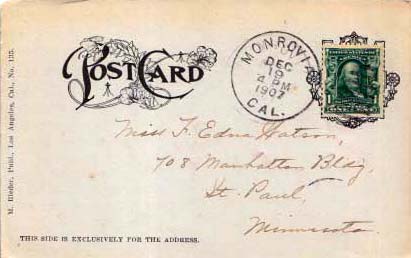 M. Rieder, Publ., Los Angeles, Cal., No. 135.
POST CARD
MONROVIA
DEC
19
4 PM
1907
CAL.
1
Miss F. Edna Hatson,
708 Manhattan Bldg,
St. Paul,
Minnesota.
THIS SIDE IS EXCLUSIVELY FOR THE ADDRESS.